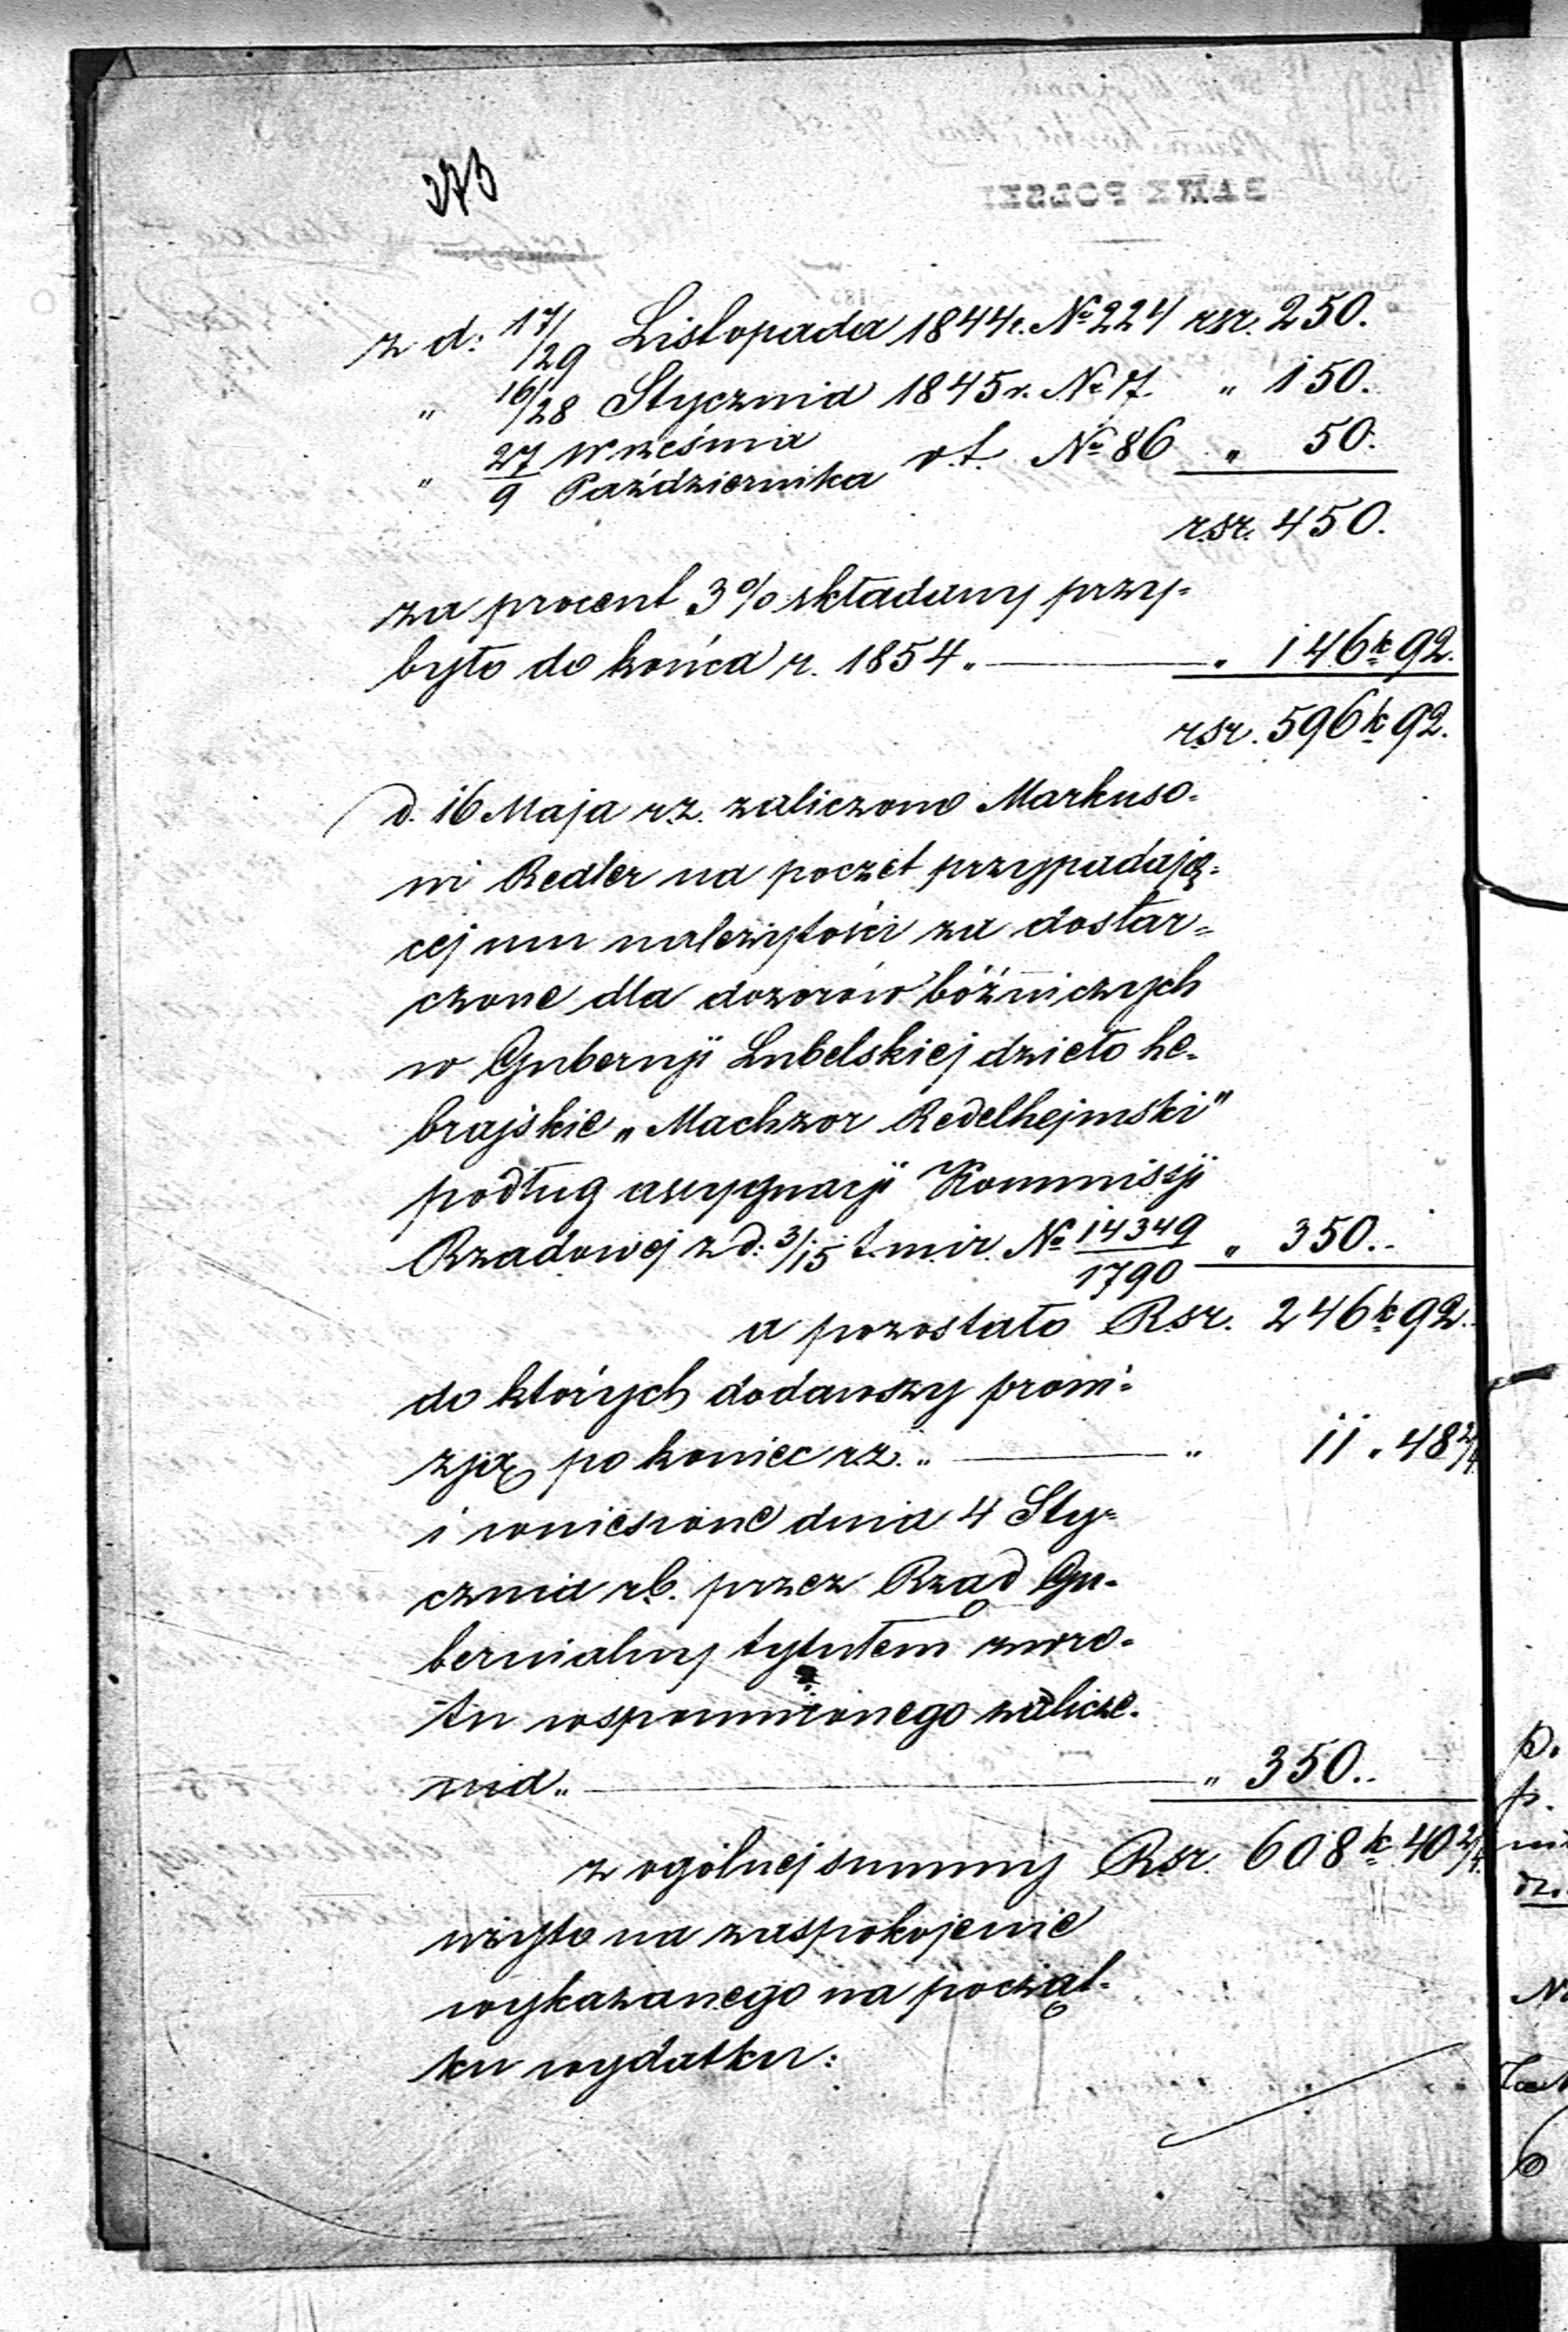 273
BANK POLSKI
z d: 17/29 Listopada 1844 r. № 224 rsr. 250.
„ 16/28 Stycznia 1845 r. № 7. „ 150.
„ 27 Września / 9 Października r.t. № 86 „ 50.
rsr. 450.
za procent 3% składany przy=
było do końca r. 1854 „ — „ 146 k 92.
rsr. 596 k 92.
d. 16 Maja r.z. zaliczono Markuso=
wi Redler na poczet przypadają=
cej mu należytości za dostar=
czone dla dozorów bóźniczych
w Gubernji Lubelskiej dzieło he=
brajskie „Machzor Redelhejmski"
podług assygnacji Kommissji
Rządowej z d: 3/15 t.m. i r. № 14349/1790 „ 350..
a pozostało Rsr. 246 k 92.
do których dodawszy prowi=
zją po koniec r.z. „ — „ 11 „ 48 2/4
i wniesione dnia 4 Sty=
cznia r.b. przez Rząd Gu=
bernialny tytułem zwro=
tu wspomnionego zalicze=
nia „ — „ 350..
z ogólnej summy Rsr. 608 k 40 2/4
użyto na zaspokojenie
wykazanego na począt=
ku wydatku: